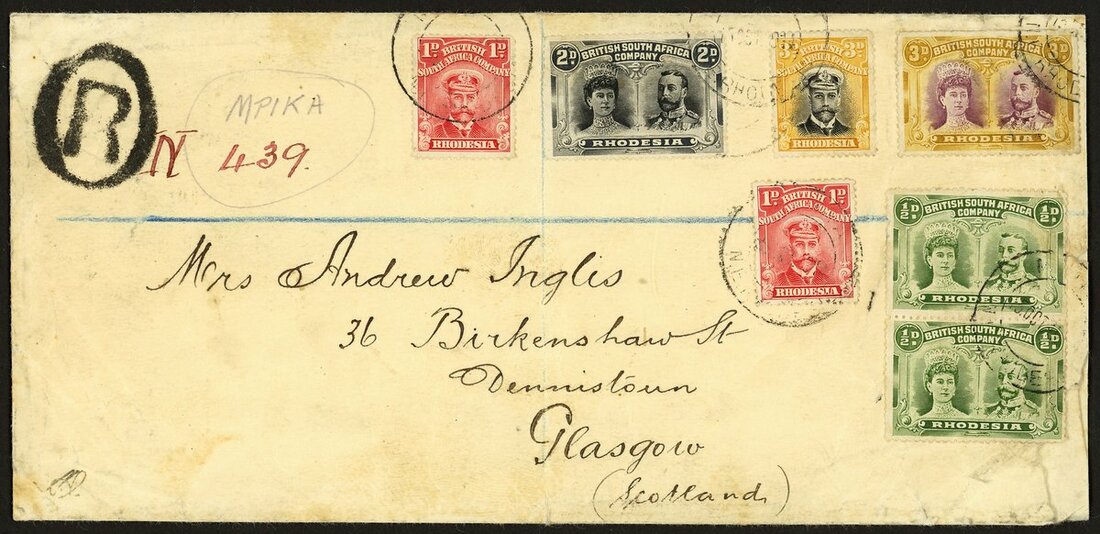 R
MPIKA
N 439.
1D BRITISH 1D
SOUTH AFRICA COMPANY
RHODESIA
2D BRITISH SOUTH AFRICA 2D
COMPANY
RHODESIA
3D BRITISH 3D
SOUTH AFRICA COMPANY
RHODESIA
3D BRITISH SOUTH AFRICA 3D
COMPANY
RHODESIA
1D BRITISH 1D
SOUTH AFRICA COMPANY
RHODESIA
½D BRITISH SOUTH AFRICA ½D
COMPANY
RHODESIA
½D BRITISH SOUTH AFRICA ½D
COMPANY
RHODESIA
Mrs Andrew Inglis
36 Birkenshaw St
Dennistoun
Glasgow
(Scotland)